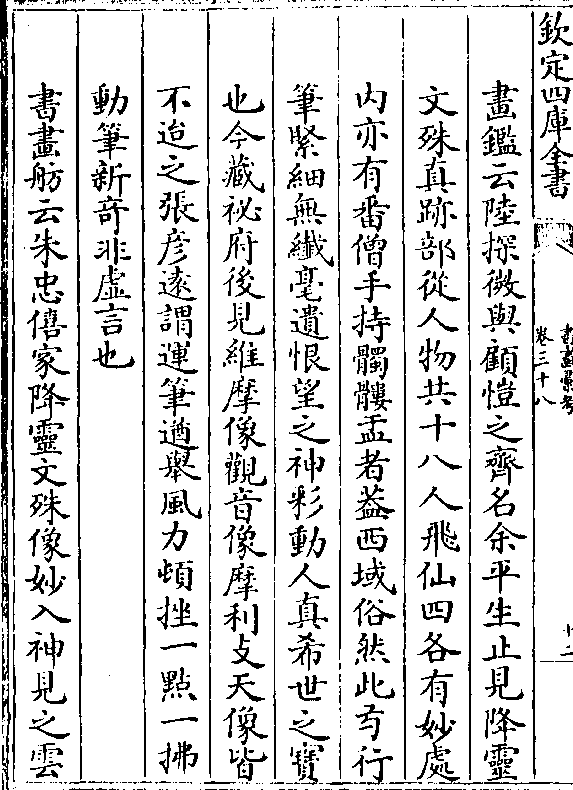 欽定四庫全書
書畫彙考
卷三十八
十二
畫鑑云陸探微與顧愷之齊名余平生止見降靈
文殊真跡部從人物共十八人飛仙四各有妙處
内亦有番僧手持髑髏盂者葢西域俗然此𢎞行
筆緊細無纎毫遺恨望之神彩動人真希世之寳
也今藏祕府後見維摩像觀音像摩利支天像皆
不迨之張彦逺謂運筆遒舉風力頓挫一點一拂
動筆新竒非虚言也
書畫舫云朱忠僖家降靈文殊像妙入神見之雲